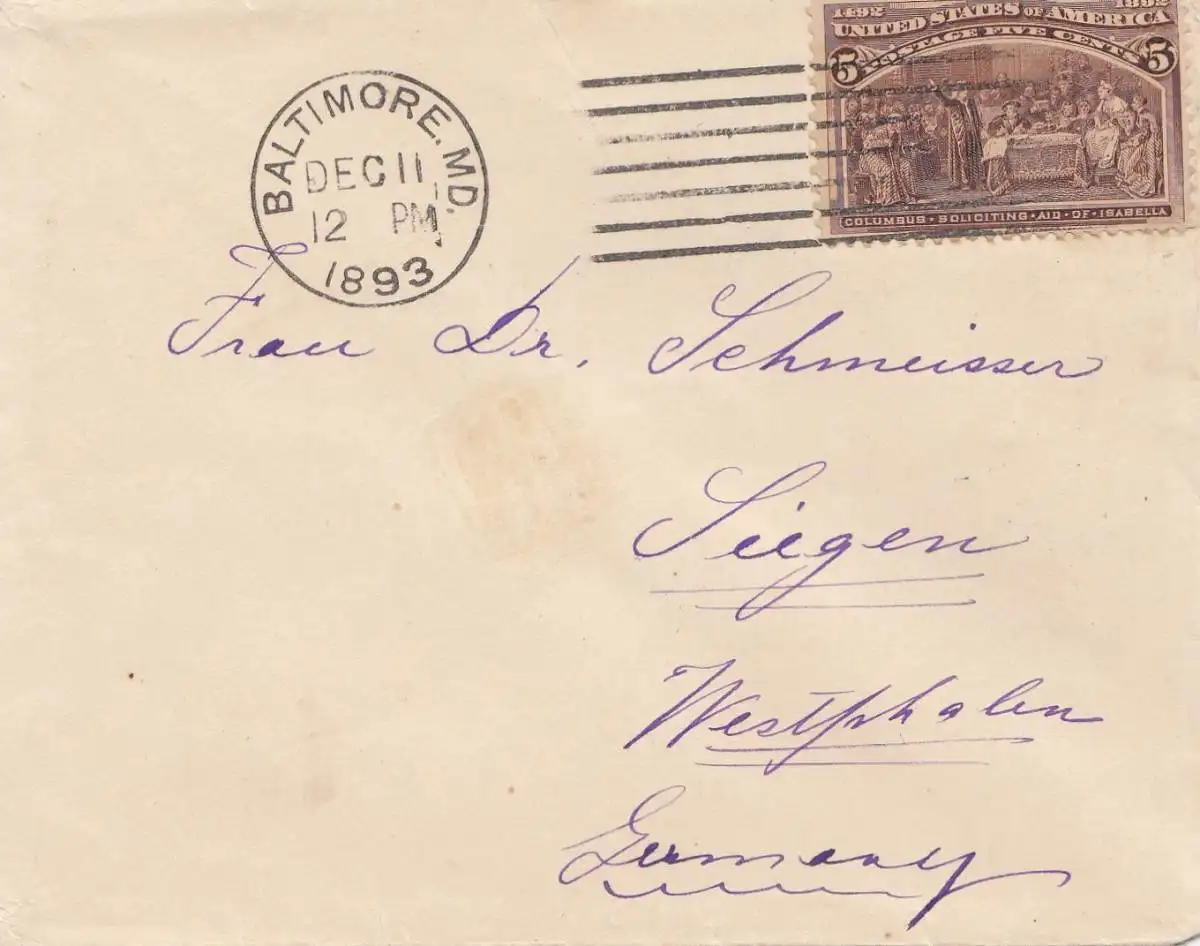 1492 1892
UNITED STATES OF AMERICA
POSTAGE FIVE CENTS
5 5
COLUMBUS · SOLICITING · AID · OF · ISABELLA
BALTIMORE, MD.
DEC 11
12 PM
1893
Frau Dr. Schmeisser
Siegen
Westphalen
Germany